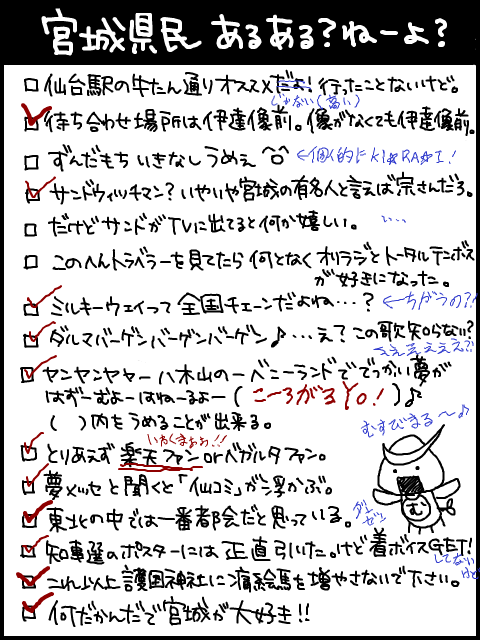 宮城県民 あるある？ねーよ？
仙台駅の牛たん通りオススメだよ！行ったことないけど。
じゃない(高い)
待ち合わせ場所は伊達像前。像がなくても伊達像前。
ずんだもちいきなしうめぇ ←個人的にKI☆RA☆I！
サンドウィッチマン？いやいや宮城の有名人と言えば宗さんだろ。
だけどサンドがTVに出てると何か嬉しい。 い…
このへんトラベラーを見てたら何となくオリラジとトータルテンボス
が好きになった。
ミルキーウェイって全国チェーンだよね…？ ←ちがうの?!
ダルマバーゲンバーゲンバーゲン♪…え？この歌知らない？
ええええええ?!
ヤンヤンヤャー八木山のーベニーランドででっかい夢が
はずーむよーはねーるよー(こーろがるYo！)♪
( )内をうめることが出来る。
むすびまる〜♪
いぬくまぁぉ!!
とりあえず楽天ファンorベガルタファン。
夢メッセと聞くと「仙コミ」が浮かぶ。
東北の中では一番都会だと思っている。
む
知事選のポスターには正直引いた。けど着ボイスGET！
してないけど
これ以上護国神社に痛絵馬を増やさないで下さい。
何だかんだで宮城が大好き!!